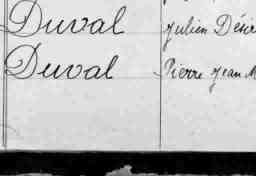 Duval Julien Dési
Duval Pierre Jean M